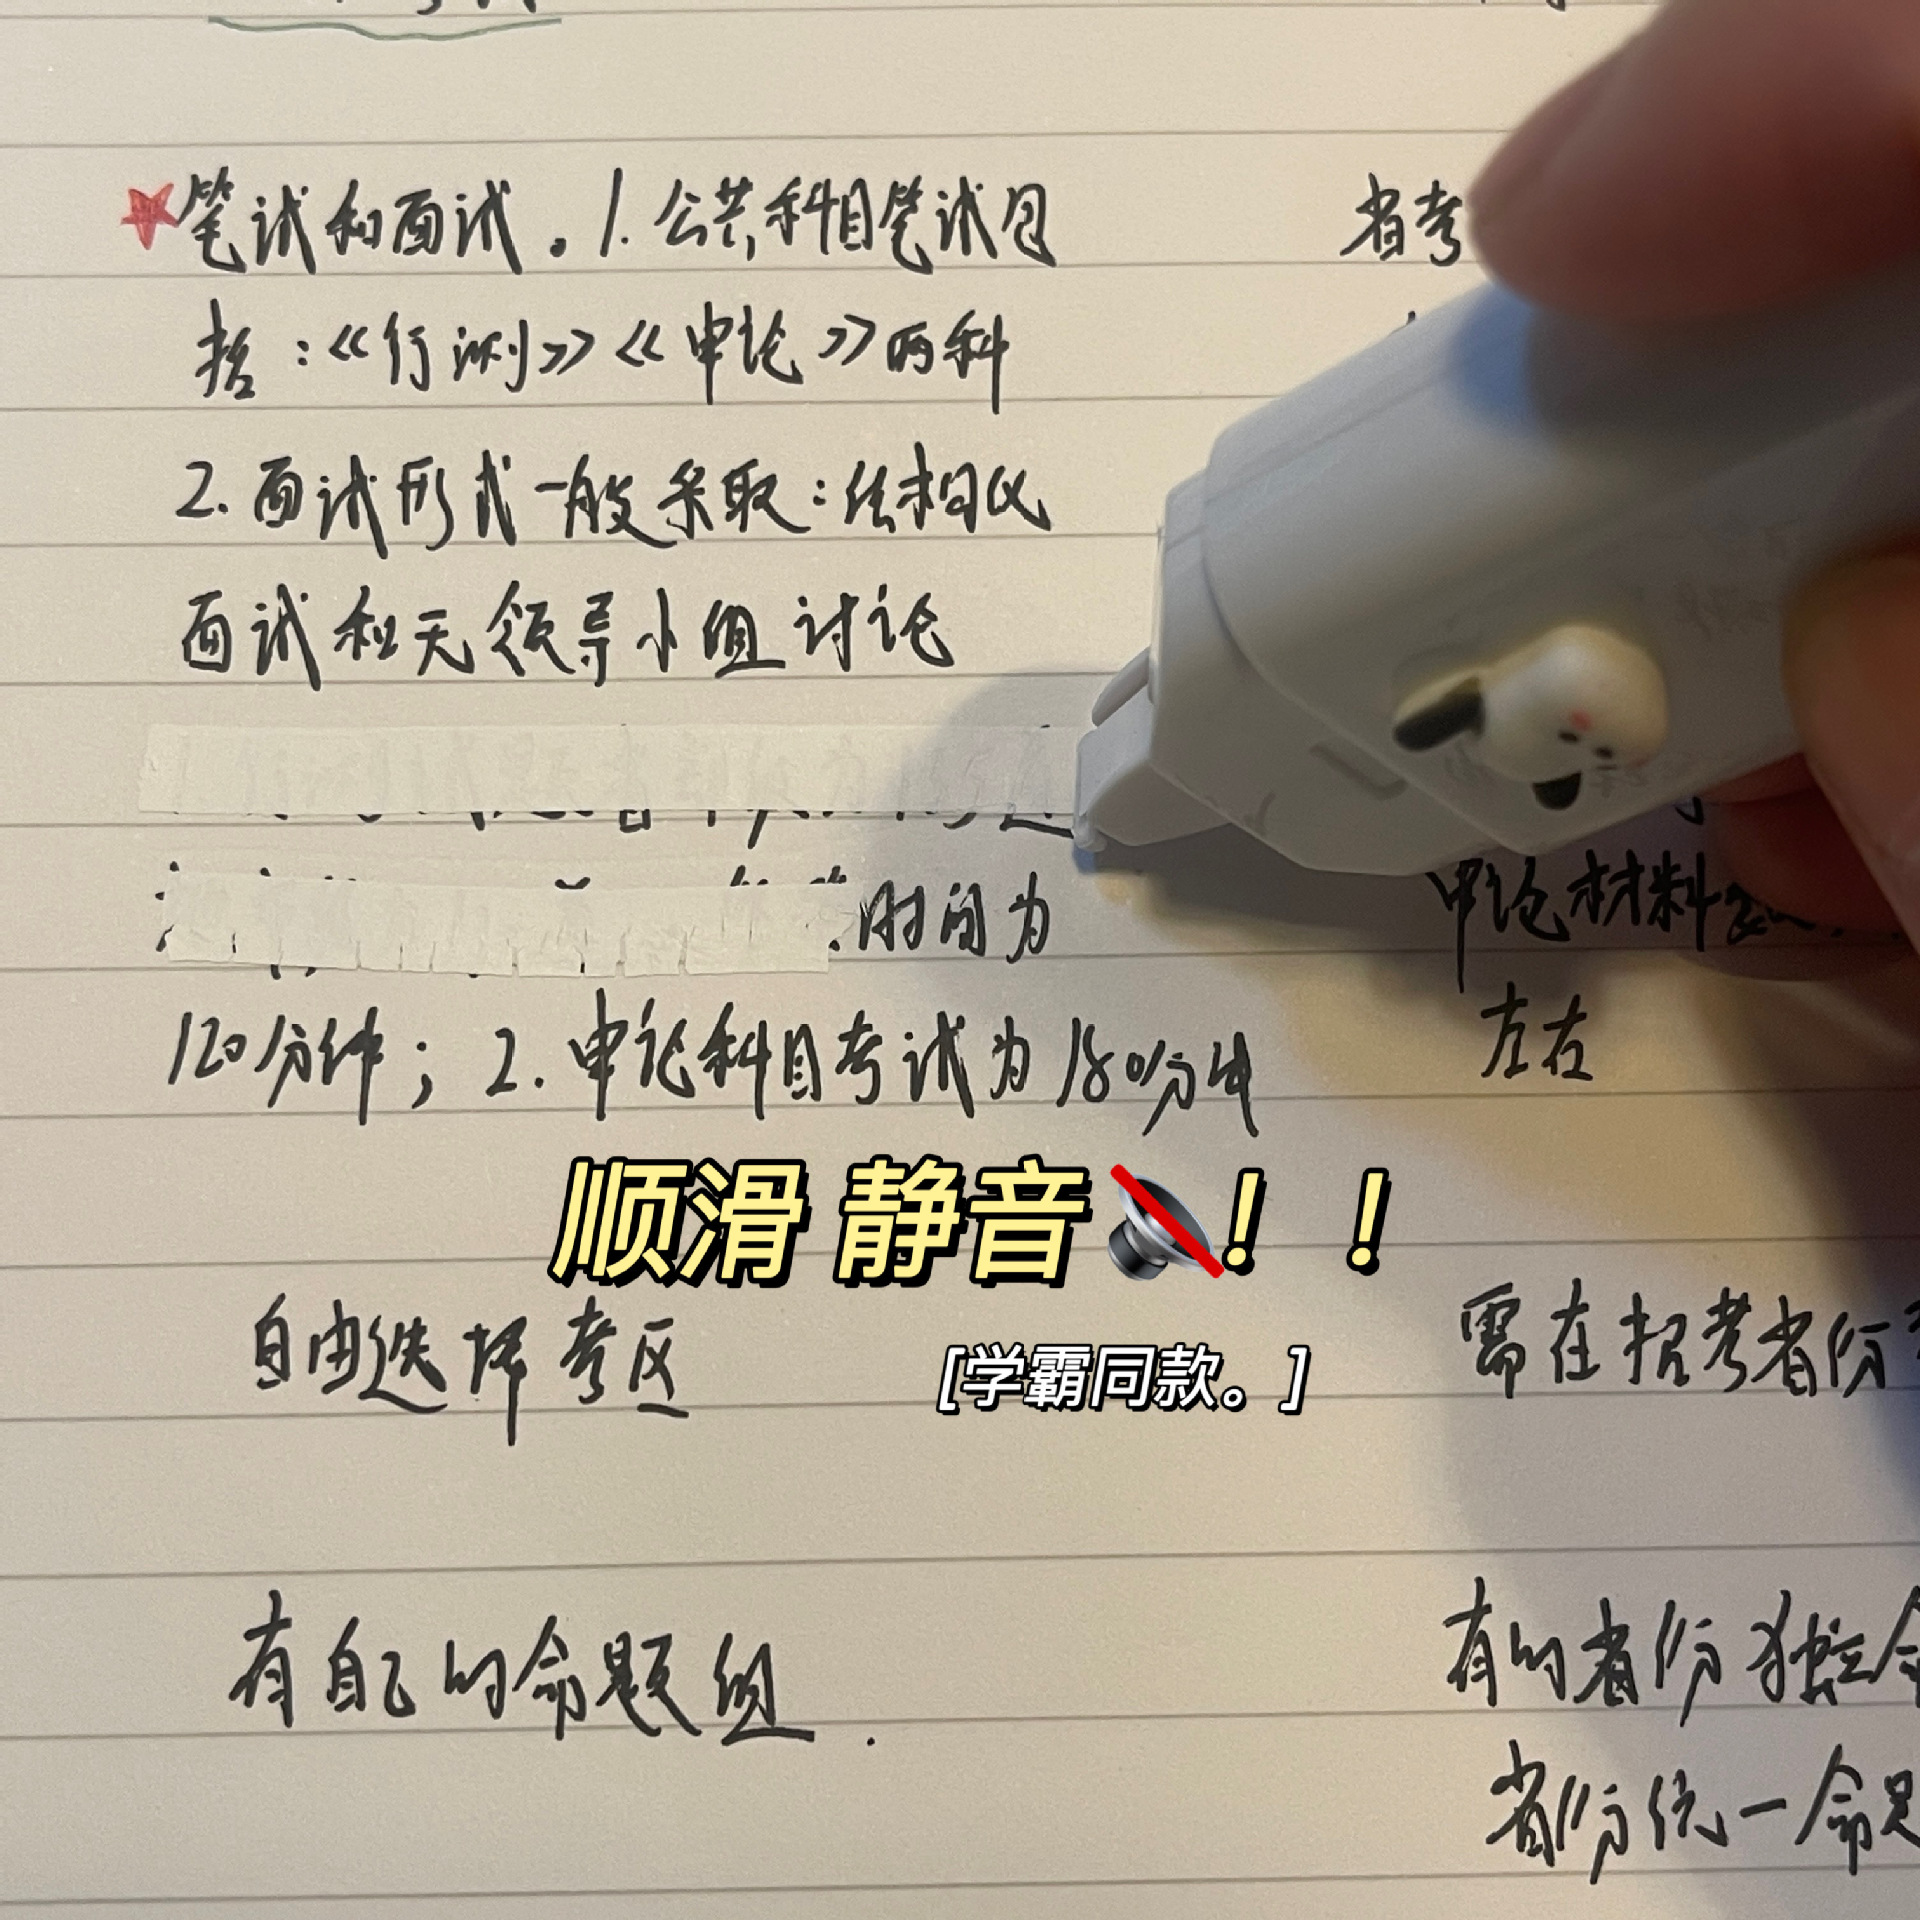 笔试和面试。1.公共科目笔试包
括:《行测》《申论》两科
2.面试形式一般采取:结构化
面试和无领导小组讨论
时间为
120分钟;2.申论科目考试为180分钟
自由选择考区
有自己的命题组.
省考
申论材料
左右
需在招考省份
有的省份独立命
省份统一命题
顺滑 静音🔇!!
[学霸同款。]